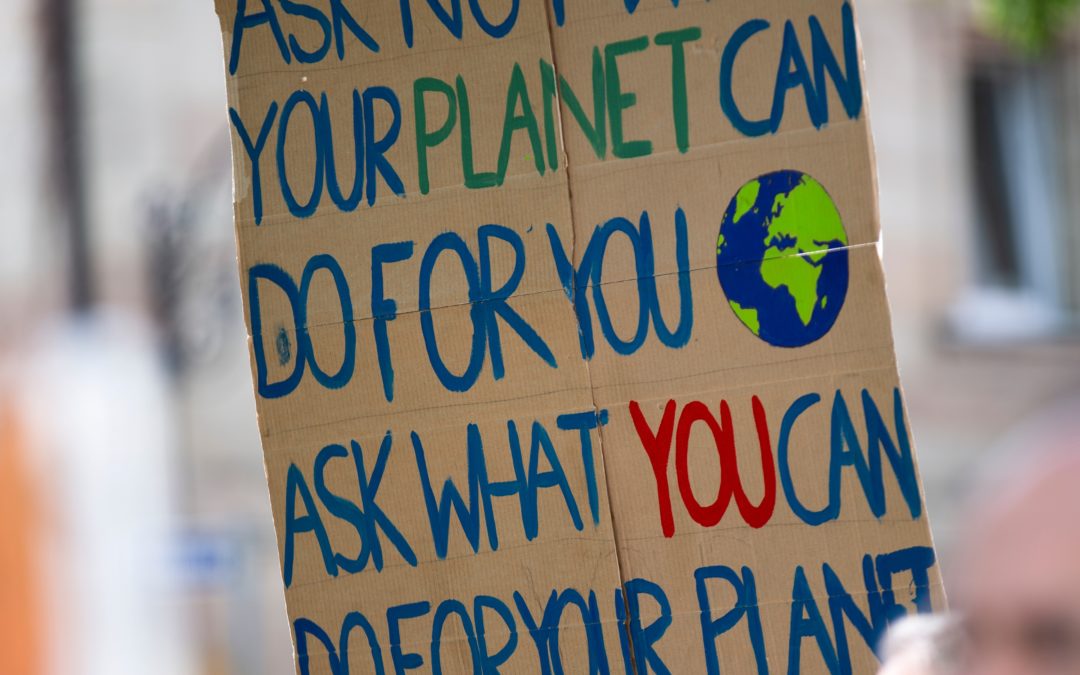 ASK NOT
YOUR PLANET CAN
DO FOR YOU
ASK WHAT YOU CAN
DO FOR YOUR PLANET